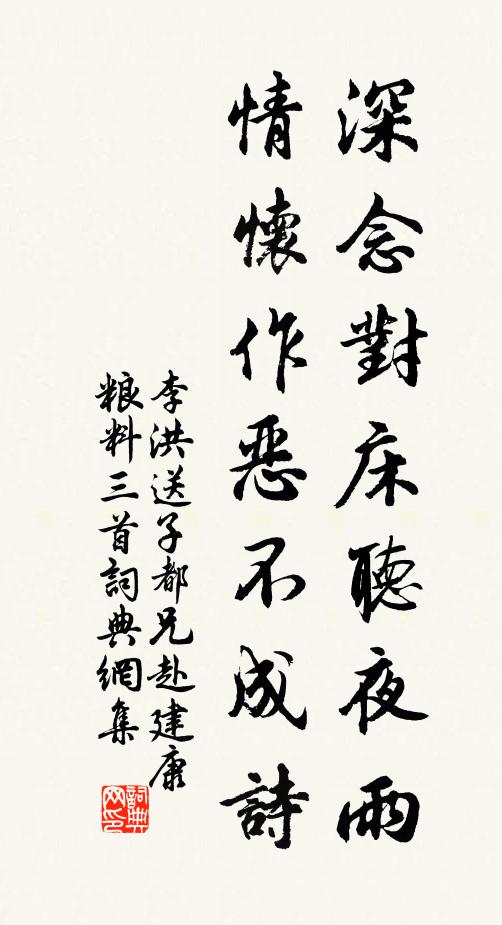 深念對床聽夜雨
情懷作惡不成詩
李洪送子都兄赴建康
粮料三首詞典網集
詞典网印